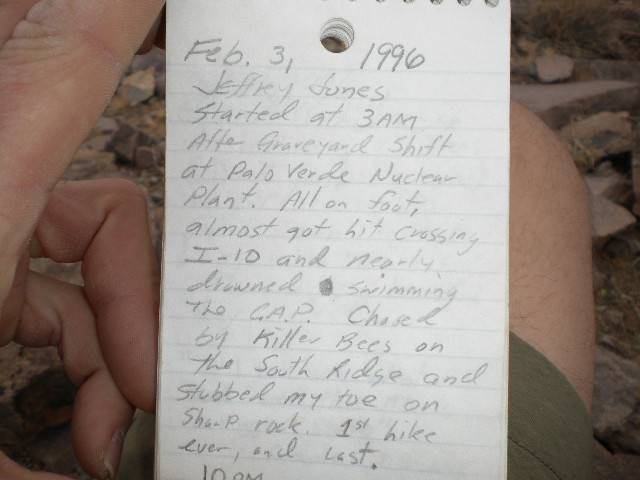 Feb. 3, 1996
Jeffrey Jones
Started at 3AM
After Graveyard Shift
at Palo Verde Nuclear
Plant. All on foot,
almost got hit crossing
I-10 and nearly
drowned swimming
the C.A.P. Chased
by Killer Bees on
the South Ridge and
stubbed my toe on
sharp rock. 1st hike
ever, and last.
10 PM